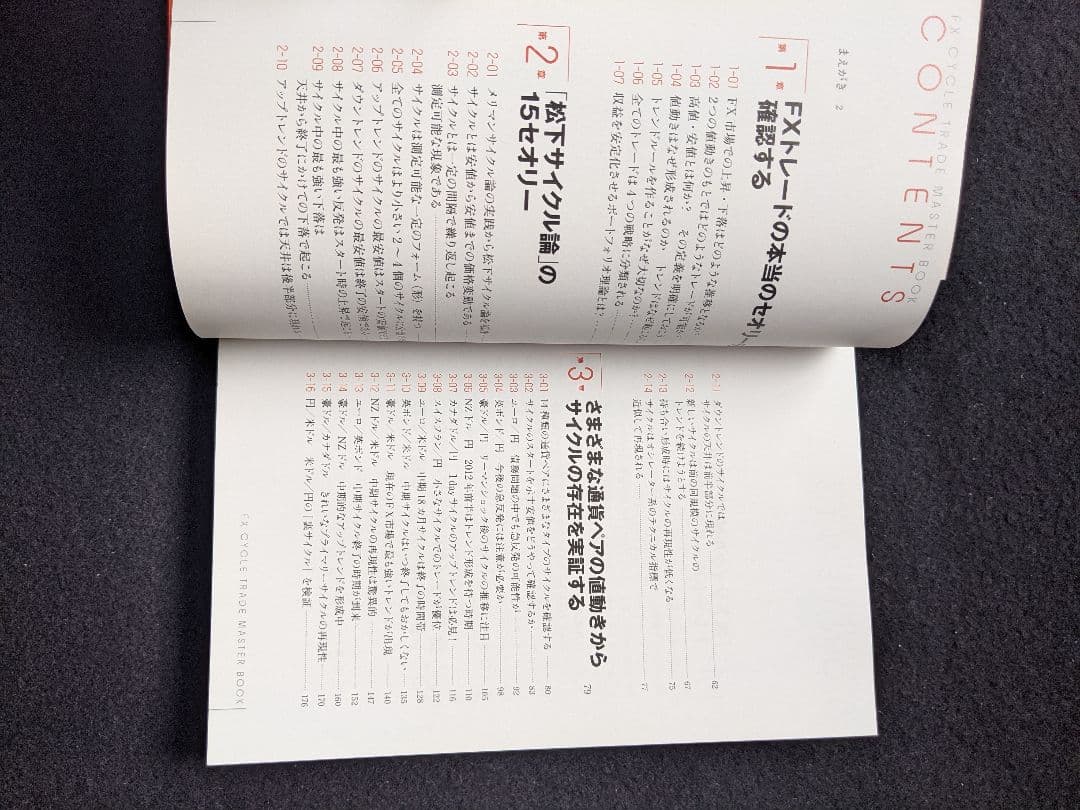 FX CYCLE TRADE MASTER BOOK
CONTENTS
まえがき 2
第1章 FXトレードの本当のセオリー
確認する
1-01 FX市場での上昇・下落はどのような意味となるか
1-02 2つの値動きのもとではどのようなトレードが可能か
1-03 高値・安値とは何か? その定義を明確にしておこう
1-04 値動きはなぜ形成されるのか トレンドはなぜ
1-05 トレンドルールを作ることがなぜ大切なのか?
1-06 全てのトレードは4つの戦略に分類される
1-07 収益を安定化させるポートフォリオ理論とは?
第2章 「松下サイクル論」の
15セオリー
2-01 メリマンサイクル論の実践から松下サイクル論を
2-02 サイクルとは安値から安値までの価格変動である
2-03 サイクルとは一定の間隔で繰り返し起こる
測定可能な現象である
2-04 サイクルは測定可能な一定のフォーム(形)を持つ
2-05 全てのサイクルはより小さい2〜4個のサイクルに
2-06 アップトレンドのサイクルの最安値はスタートの安値
2-07 ダウントレンドのサイクルの最安値は終了の安値
2-08 サイクル中の最も強い反発はスタート時の上昇で起こる
2-09 サイクル中の最も強い下落は
天井から終了にかけての下落で起こる
2-10 アップトレンドのサイクルでは天井は後半部分に現れる
2-11 ダウントレンドのサイクルでは
サイクルの天井は前半部分に現れる 62
2-12 新しいサイクルは前の同規模のサイクルの
トレンドを続けようとする 67
2-13 持ち合い形成時にはサイクルの再現性が低くなる 75
2-14 サイクルはオシレーター系のテクニカル指標で
近似して再現される 77
第3章 さまざまな通貨ペアの値動きから
サイクルの存在を実証する 79
3-01 14種類の通貨ペアにさまざまなタイプのサイクルを確認する 80
3-02 サイクルのスタートを示す安値をどうやって確認するか 83
3-03 ユーロ/円 債務問題の中でも急反発の可能性が 92
3-04 英ポンド/円 今後の急反発には注意が必要か 98
3-05 豪ドル/円 リーマンショック後のサイクルの推移に注目 105
3-06 NZドル/円 2012年前半はトレンド形成を待つ時期 110
3-07 カナダドル/円 1dayサイクルのアップトレンドは必見! 116
3-08 スイスフラン/円 小さなサイクルでのトレードが優位 122
3-09 ユーロ/米ドル 中期18カ月サイクルは終了の時間帯 128
3-10 英ポンド/米ドル 中期サイクルはいつ終了してもおかしくない 135
3-11 豪ドル/米ドル 現在のFX市場で最も強いトレンドが出現 140
3-12 NZドル/米ドル 中期サイクルの再現性は驚異的 147
3-13 ユーロ/英ポンド 中期サイクル終了の時間が到来 152
3-14 豪ドル/NZドル 中期的なアップトレンドを形成中 160
3-15 豪ドル/カナダドル きれいなプライマリーサイクルの再現性 170
3-16 円/米ドル 米ドル/円の「裏サイクル」を検証 176
FX CYCLE TRADE MASTER BOOK